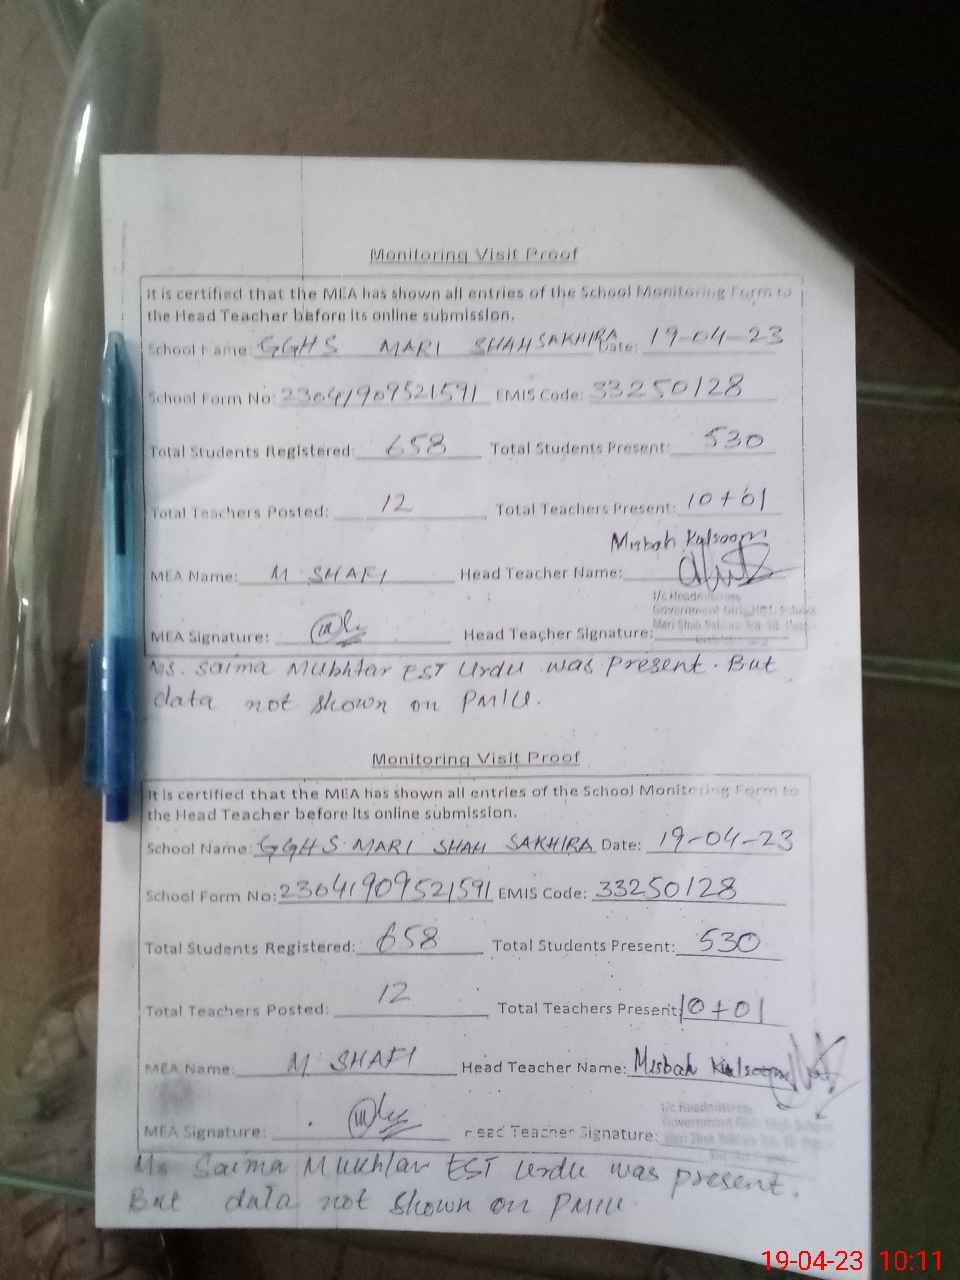 Monitoring Visit Proof
It is certified that the MEA has shown all entries of the School Monitoring Form to
the Head Teacher before its online submission.
School Name: GGHS MARI SHAH SAKHIRA Date: 19-04-23
School Form No: 23041909521591 EMIS Code: 33250128
Total Students Registered: 658 Total Students Present: 530
Total Teachers Posted: 12 Total Teachers Present: 10+01
Misbah Kalsoom
MEA Name: M SHAFI Head Teacher Name:
I/c Headmistress
Government Girls High School
MEA Signature: Head Teacher Signature:
Ms. Saima Mubhtar EST Urdu was present. But
data not shown on PMIU.
Monitoring Visit Proof
It is certified that the MEA has shown all entries of the School Monitoring Form to
the Head Teacher before its online submission.
School Name: GGHS MARI SHAH SAKHIRA Date: 19-04-23
School Form No: 23041909521591 EMIS Code: 33250128
Total Students Registered: 658 Total Students Present: 530
Total Teachers Posted: 12 Total Teachers Present: 10+01
MEA Name: M SHAFI Head Teacher Name: Misbah Kalsoom
I/c Headmistress
Government Girls High School
MEA Signature: Head Teacher Signature:
Ms Saima Mukhtar EST Urdu was present.
But data not shown on PMIU.
19-04-23 10:11